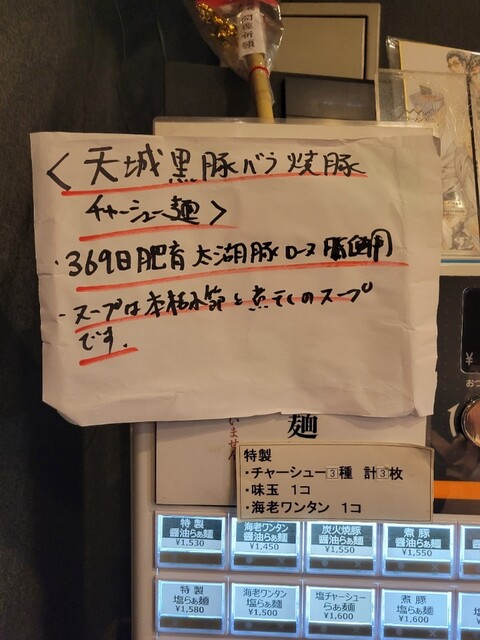 開運祈願
<天城黒豚バラ焼豚
チャーシュー麺>
・369日肥育太湖豚ロース
・スープは本枯れ節と煮干しのスープ
です.
いません
麺
特製
・チャーシュー3種 計3枚
・味玉 1コ
・海老ワンタン 1コ
特製
醤油らぁ麺
¥1,530
海老ワンタン
醤油らぁ麺
¥1,450
炭火焼豚
醤油らぁ麺
¥1,550
煮豚
醤油らぁ麺
¥1,550
特製
塩らぁ麺
¥1,580
海老ワンタン
塩らぁ麺
¥1,500
塩チャーシュー
らぁ麺
¥1,600
煮豚
塩らぁ麺
¥1,600
¥
おつ